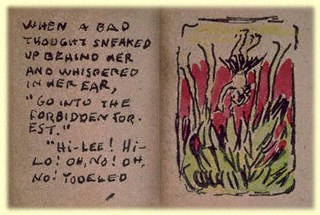 WHEN A BAD
THOUGHT SNEAKED
UP BEHIND HER
AND WHISPERED
IN HER EAR,
"GO INTO THE
FORBIDDEN FOR-
EST."
"HI-LEE! HI-
LO! OH, NO! OH,
NO! YODELED